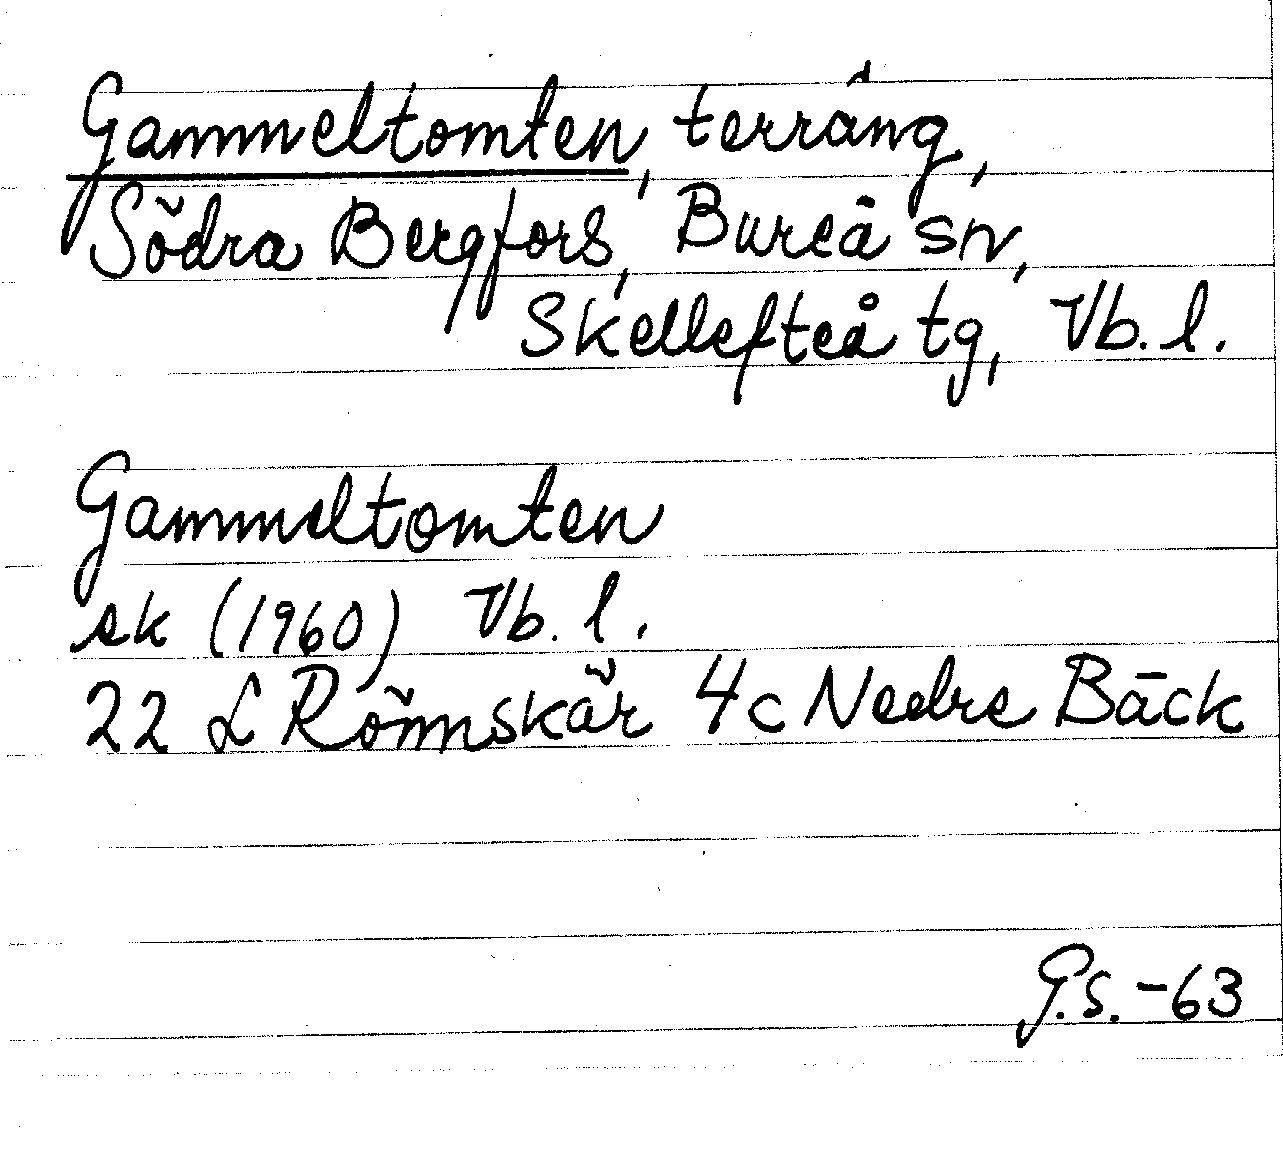 Gammeltomten, terräng,
Södra Bergfors, Bureå sn,
Skellefteå tg, Vb. l.
Gammeltomten
ek (1960) Vb. l.
22 L Rönnskär 4c Nedre Bäck
G.S. -63